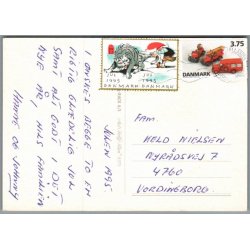 JULEN 1995.
I ØNSKES BEGGE TO EN
RIGTIG GLÆDELIG JUL
SAMT ALT GODT I DET
NYE ÅR, HILS FAMILIEN
JUL 1995
JUL 1995
DANMARK DANMARK
3.75
DANMARK
FAM.
HELD NIELSEN
NYRÅDSVEJ 7
4760
VORDINGBORG